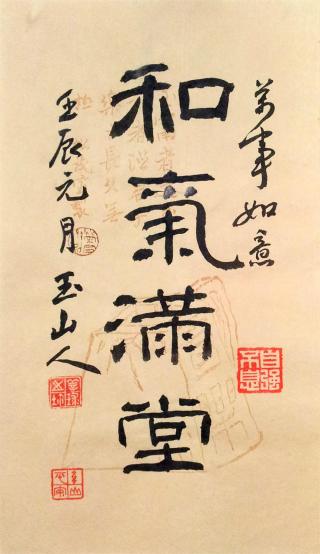 萬事如意
和氣滿堂
壬辰元月 玉山人
自強不息